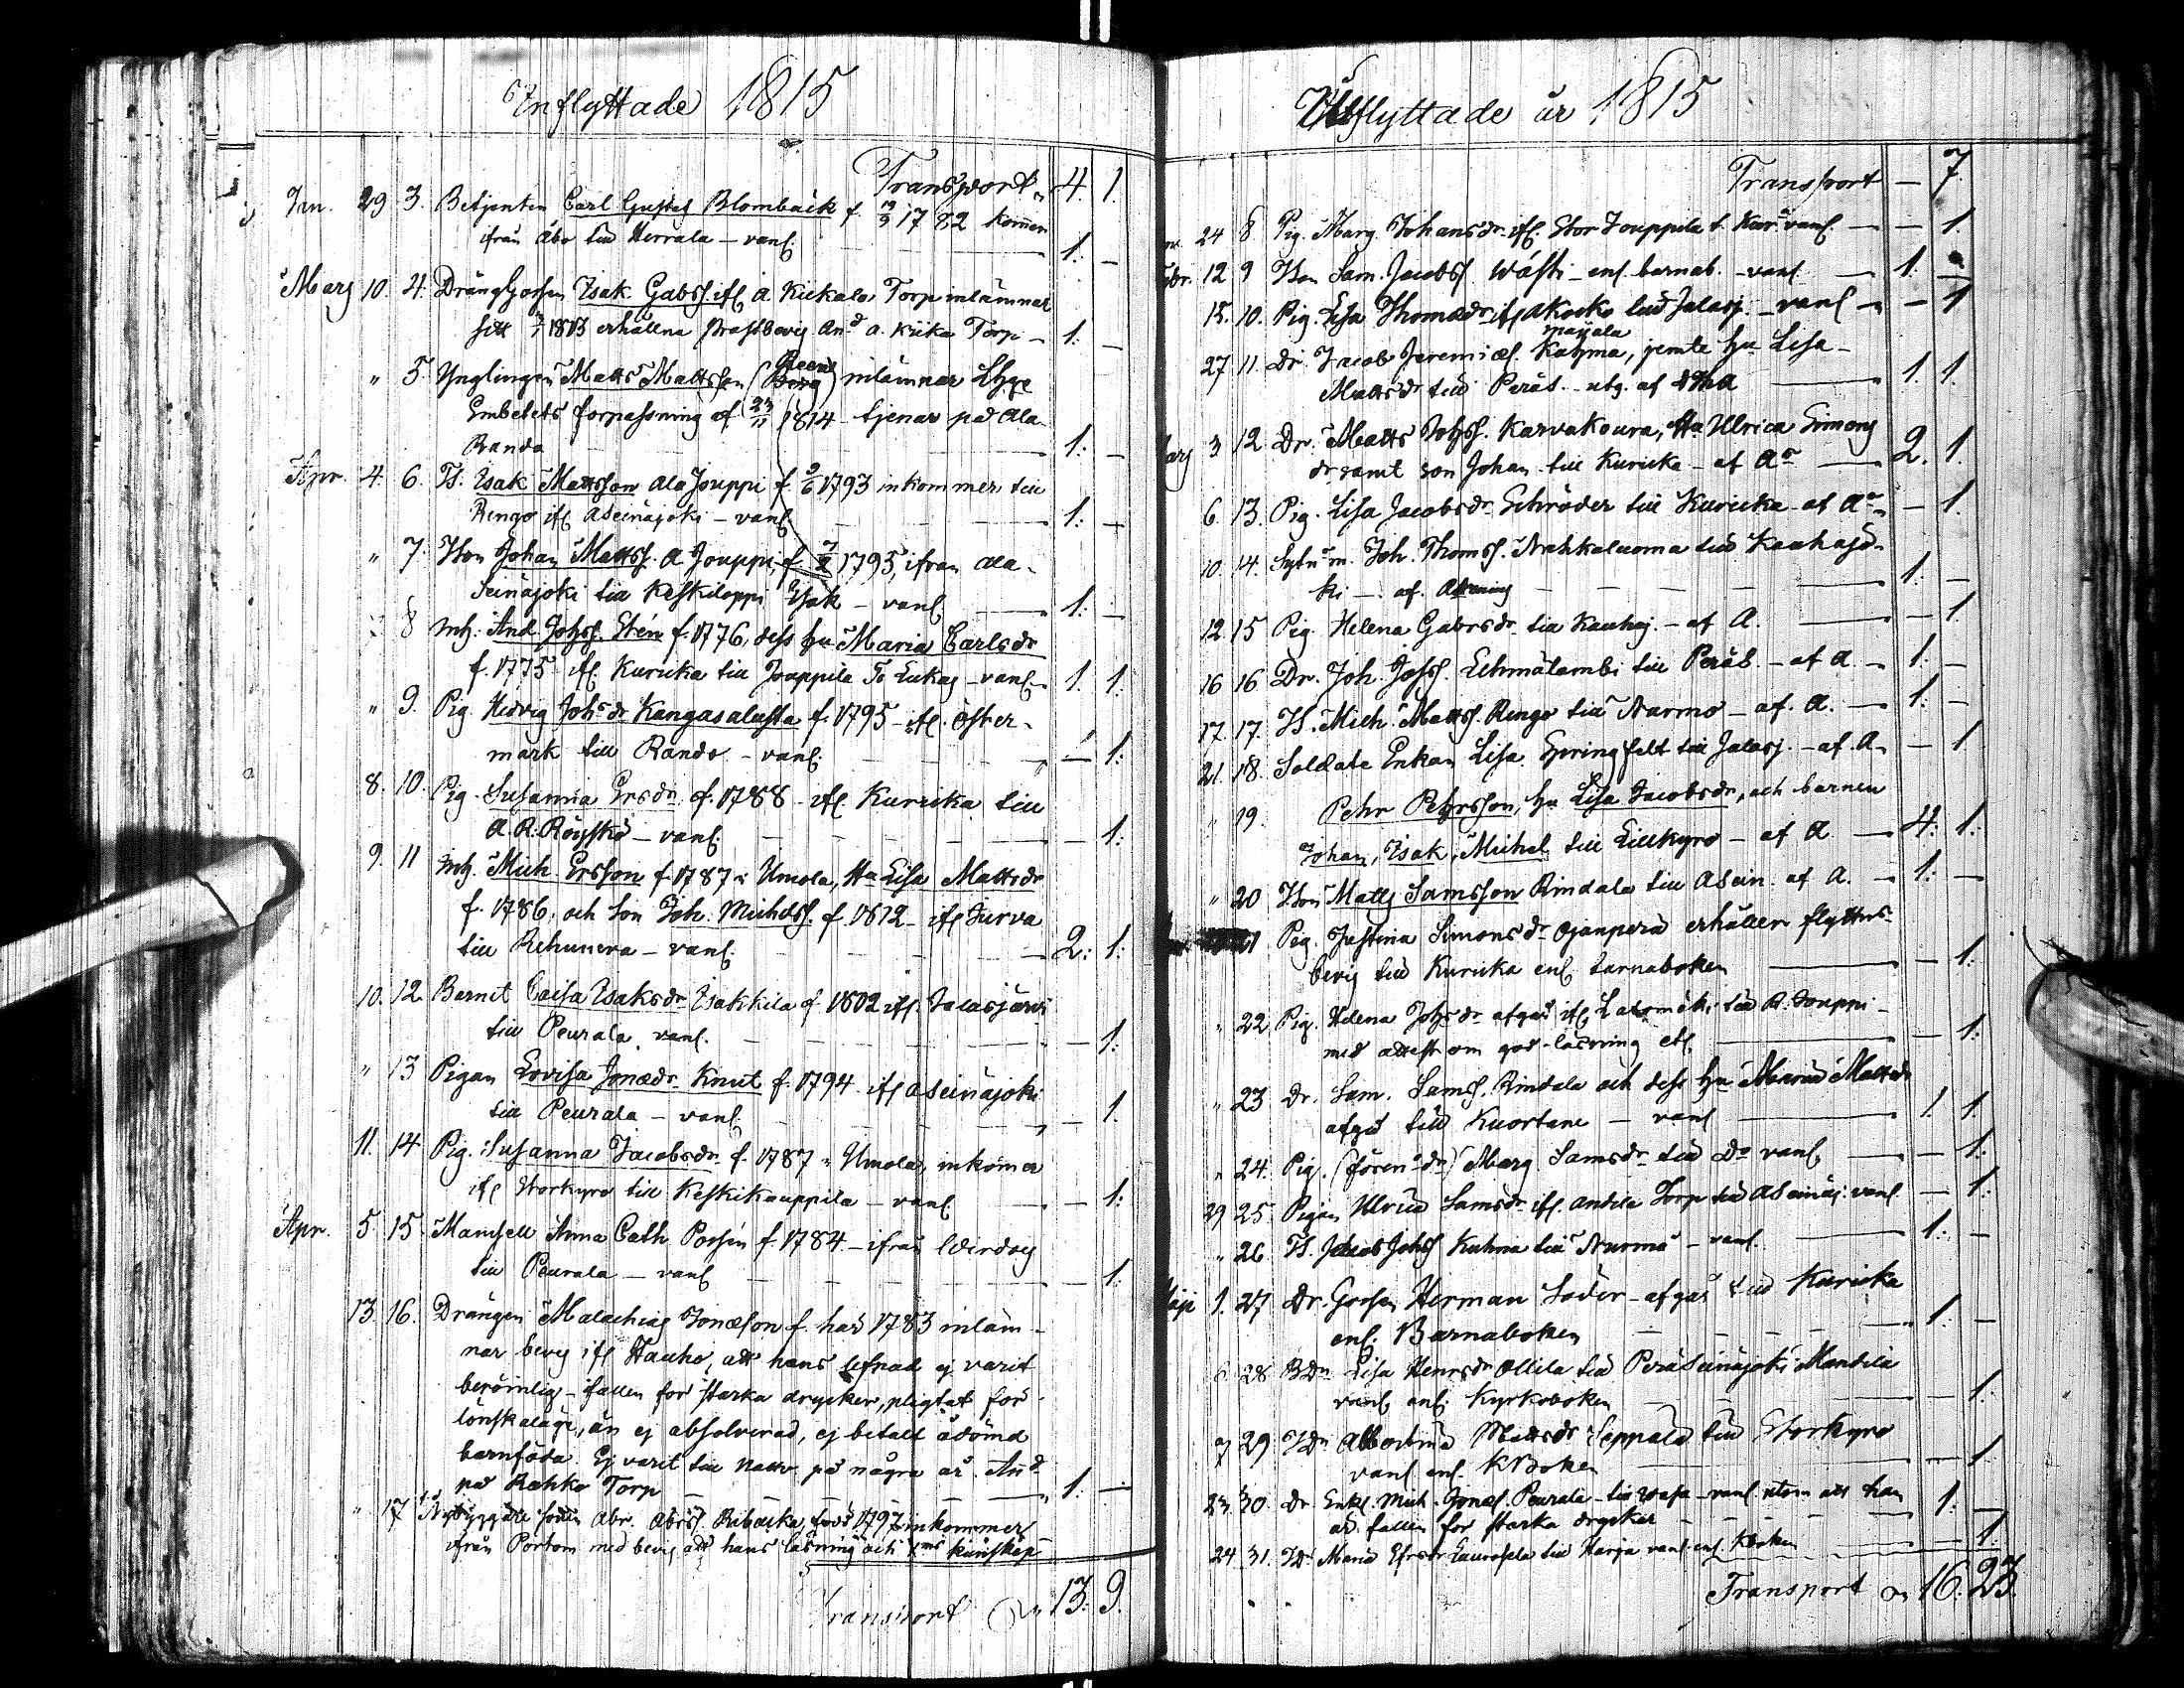 Inflyttade 1815
Transport 4. 1.
Jan. 29 3. Betjenten Carl Gustaf Blombäck f. 19/9 1782 kommen
ifrån Åbo till Herrala – vanl. 1. –
Mars 10. 4. Dränggossen Isak Gabrs. ifl. A Kiekala Torp inlämnar
sitt 1813 erhållna prestbevis An. a. Kiika Torp – 1. –
" 5. Ynglingen Matts Mattsson inlämnar
Embetets förpassning af 23/11 1814 tjenar på Ala
Randa 1. –
Apr. 4. 6. Ts. Isak Mattsson Ala Jouppi f. 1793 inkommer till
Rengo ifl. A Seinäjoki – vanl. 1. –
" 7. Hson Johan Matts. A Jouppi f. 1795, ifrån Ala
Seinäjoki till Keskiloppi Isak – vanl. 1. –
8 Inh. And. Johss. Stén f. 1776, dess hu Maria Carlsdr
f. 1775 ifl. Kurikka till Jouppila To Lukas – vanl. 1. 1.
" 9. Pig. Hedvig Johsdr Kangasalusta f. 1795 – ifl. Öster-
mark till Rando – vanl. – 1.
8. 10. Pig. Susanna Ersdr f. 1788 – ifl. Kurrika till
A. R. Röyskö – vanl. – 1.
9. 11 Inh. Mich Ersson f. 1787 i Umola, Hu Lisa Mattsdr
f. 1786, och Son Joh. Michelss. f. 1812 – ifl. Jurva
till Rehunera – vanl. 2. 1.
10. 12. Barnet Caisa Isaksdr Isakkila f. 1802 ifl. Jalasjärvi
till Peurala vanl. – 1.
" 13 Pigan Lovisa Jonædr Knut f. 1794 ifl. A Seinäjoki
till Peurala – vanl. – 1.
11. 14 Pig. Susanna Jacobsdr f. 1787 i Umola, inkommer
ifl. Storkyro till Keskikauppila – vanl. – 1.
Apr. 5 15. Mamsell Anna Cath. f. 1784 – ifrån Virdois
till Peurala – vanl. – 1.
13. 16. Drängen Malachias Jonæson f. här 1783 inläm-
nar bevis ifl. Hauho, att hans lefnad ej varit
berömlig – fallen för starka drycker, pligtat för
lönskaläge, än ej absolverad, ej betalt ådömd
barnföda. Ej varit till nattv. på några år. And.
på Rahko Torp 1. –
" 17 Nybyggare Sonen Abr. Abrss. Ribacka född 1797 inkommer
ifrån Portom med bevis att hans läsning och kunskap
Transport 13. 9.
Utflyttade år 1815
Transport – 7.
24 8 Pig. Marg. Johansdr. ifl. Stor Jouppila t. Kur. vanl. – 1.
12 9 Hson Sam. Jacobss. Wästi – enl. barnab. – vanl. 1. –
15. 10. Pig. Lisa Thomædr. ifl. Akocko till Jalasj. – vanl. – 1
27 11. Dr. Jacob Jeremiæs. jemte hu Lisa
Mattsdr till Peräs. – utg. af 1. 1.
3 12. Dr. Matts Johss. Karvakoura, Hu Ulrica Simons
dr, samt son Johan till Kurikka – af Ao 2. 1.
6. 13. Pig. Lisa Jacobsdr Schröder till Kurikka – af Ao – 1.
10. 14. Sytn.m. Joh. Thomss. Nahkaluoma till Kauhajo-
ki – af. 1. –
12 15 Pig. Helena Gabrsdr till Kauhaj. – af A. – 1.
16 16 Dr. Joh. Lehmälambi till Peräs. – af A. 1. –
17. 17. Ts. Mich. Mattss. Rengo till Nurmo – af. A. 1. –
21. 18. Soldate Enkan Lisa Springfelt till Jalasj. – af. A. – 1
" 19. Pehr Pehrsson, hu Lisa Jacobsdr, och barnen
Johan, Isak, Michel till Lillkyro – af A 4. 1.
" 20 Hson Matts Samsson Rindala till A Sein. af A. 1. –
21 Pig. Justina Simonsdr Ojanperä erhåller flyttnings-
bevis till Kurikka enl. barnaboken – 1.
" 22 Pig. Helena Johsdr afgår ifl. till A. Jouppi
med attest om god läsning etc. – 1.
" 23 Dr. Sam. Samss. Rindala och dess hu Maria Mattsdr
afgår till Kuortane – vanl 1. 1.
" 24. Pig. Marg Samsdr till Do vanl. – 1.
29 25 Pigan Ulrica Samsdr ifl. Andila Torp till A Seinäj. vanl. – 1.
" 26 Ts. Jacob Johss Kuhna till Nurmo – vanl. 1. –
1. 27 Dr. Gossen Herman Söder – afgår till Kurikka
enl. Barnaboken 1. –
6 28 Lisa Henrsdr Ollila till Perä Seinäjoki Mandila
vanl. enl. Kyrkoboken – 1.
7 29 Albertina Mattsdr Seppälä till Storkyro
vanl. enl. KBoken – 1
23 30. Dr. Enkl. Mich. Jonæs. Peurala – till Wasa – vanl. utom att han
är fallen för starka drycker 1. –
24 31. Maria till Harja vanl. enl. KBoken – 1.
Transport 16. 23.